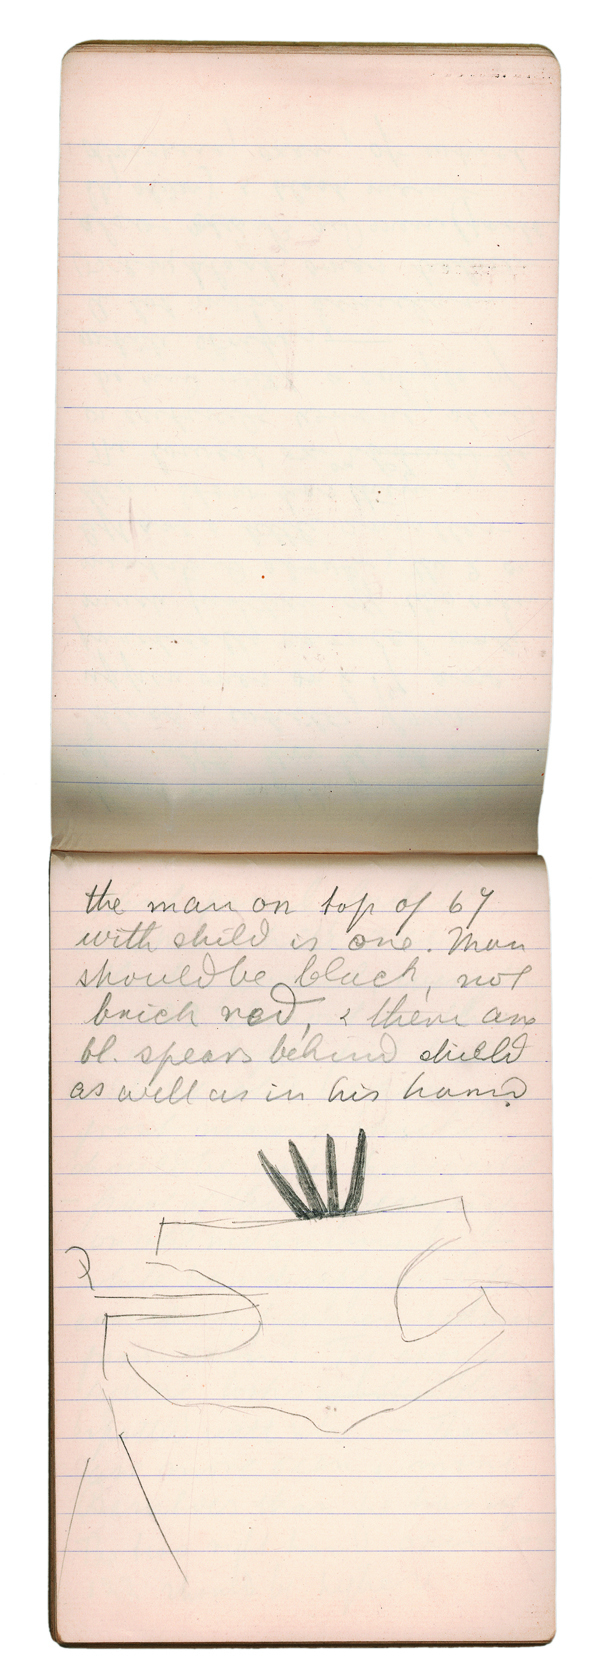 the man on top of 67
with shild is one. Man
should be black, not
brick red, & there are
bl. spears behind shield
as well as in his hand